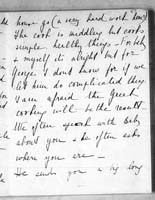 house go (a very hard work house)
The cook is middling but cooks
simple healthy things - For
& myself it is alright but for
George I don't know for if we
let him do complicated things
I am afraid the great
cooking will be the result -
We often speak with
about you & he often asks
where you are -
He sends you a big long